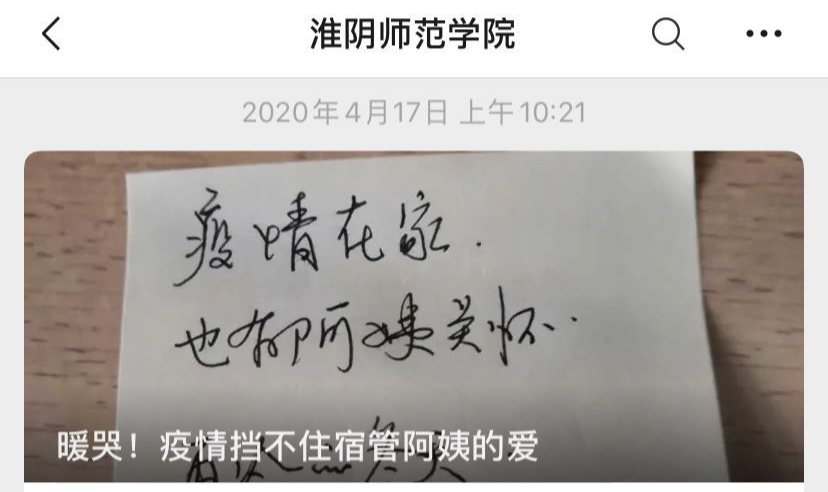 淮阴师范学院
2020年4月17日 上午10:21
疫情在家.
也有阿姨关怀..
暖哭！疫情挡不住宿管阿姨的爱